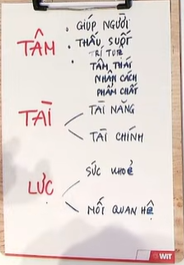 TÂM
• GIÚP NGƯỜI
• THẤU SUỐT
TRÍ TUỆ
TÂM, THÁI
NHÂN CÁCH
PHẨM CHẤT
TÀI
TÀI NĂNG
TÀI CHÍNH
LỰC
SỨC KHOẺ
MỐI QUAN HỆ
WIT